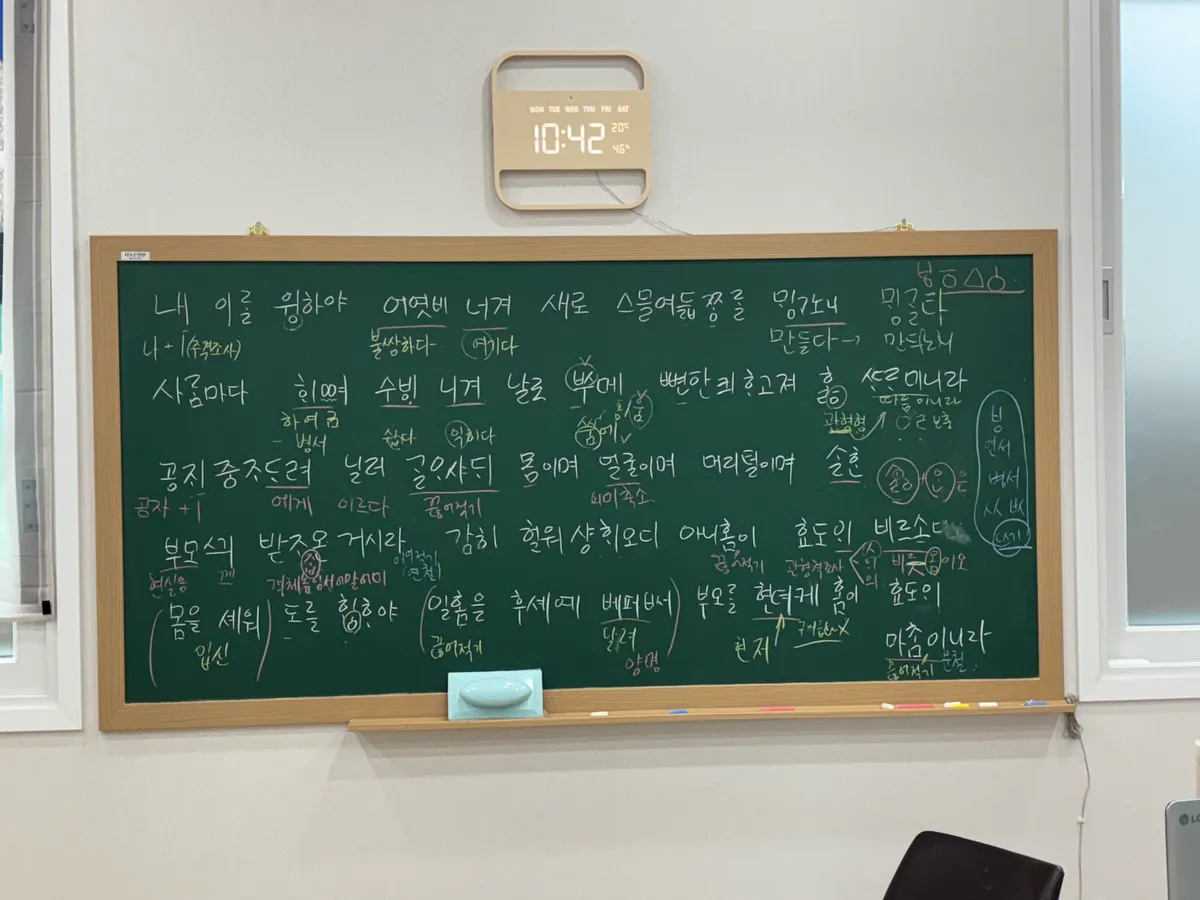 MON TUE WED THU FRI SAT
10:42 20℃
46%
내 이를 윙하야 어엿비 너겨 새로 스믈여듧쫑를 밍ᄀᆞ노니 밍ᄀᆞᆯ다
나+ㅣ(주격조사) 불쌍하다 여기다 만들다→ 만드노니
사ᄅᆞᆷ마다 ᄒᆡᅇᅧ 수빙 니겨 날로 ᄡᅮ메 뼌한킈 ᄒᆞ고져 ᄒᆞᇙ ᄯᆞᄅᆞ미니라
하여금 쉽다 익히다 관형형 따름이니라
병서 씀에
공지 중ᄌᆞᄃᆞ려 닐러 ᄀᆞᆯᄋᆞ샤ᄃᆡ 몸이며 얼굴이며 머리털이며 ᄉᆞᆯᄒᆞᆫ
공자+ㅣ 에게 이르다 끊어적기 의미축소
부모ᄭᅴ 받ᄌᆞ온 거시라 감히 헐워 샹ᄒᆡ오디 아니홈이 효도ᄋᆡ 비르소
현실음 께 이어적기 연철 끊어적기 관형격조사
몸을 셰워 도를 ᄒᆡᆼᄒᆞ야 일홈을 후셰예 베퍼 ᄡᅥ 부모를 현뎌케 홈이 효도ᄋᆡ
입신 끊어적기 날려 현저
양명
ᄆᆞᄎᆞᆷ이니라
끊어적기 분철
연서
병서
LG